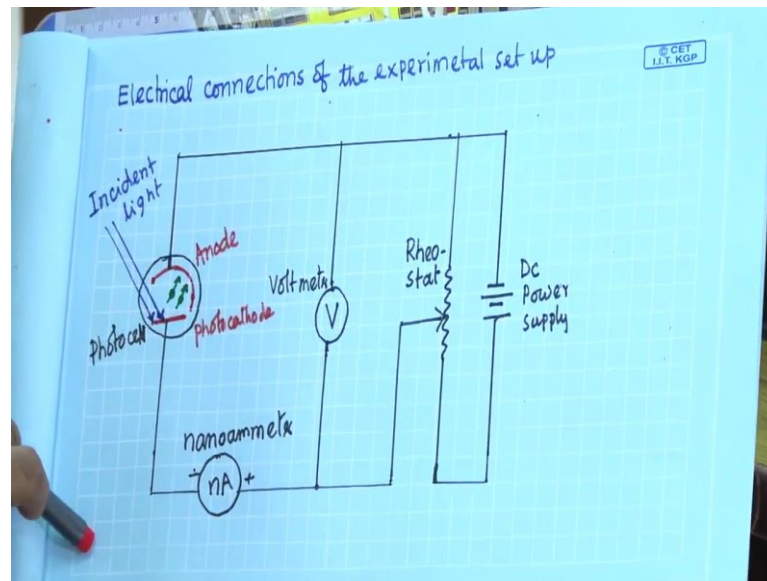 © CET
I.I.T. KGP
Electrical connections of the experimetal set up
Incident
light
Anode
Photocell
Photocathode
Voltmeter
V
Rheo-
stat
Dc
Power
supply
nanoammeter
- nA +